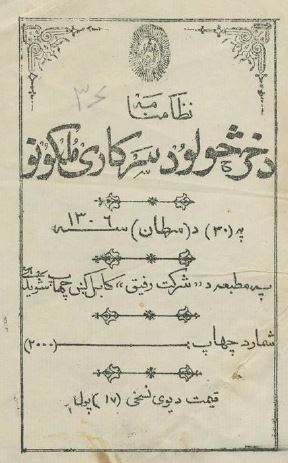 ۳۶
نظامنامه
د خرڅولو د سرکاری ملکونو
په (۳۰) د (سرطان) سنه ۱۳۰۶
په مطبعه د «شرکت رفیق» کابل کښ چهاپ شویده
شمار د چهاپ: (۲۰۰۰)
قیمت د یوی نسخی (۱۷) پوله